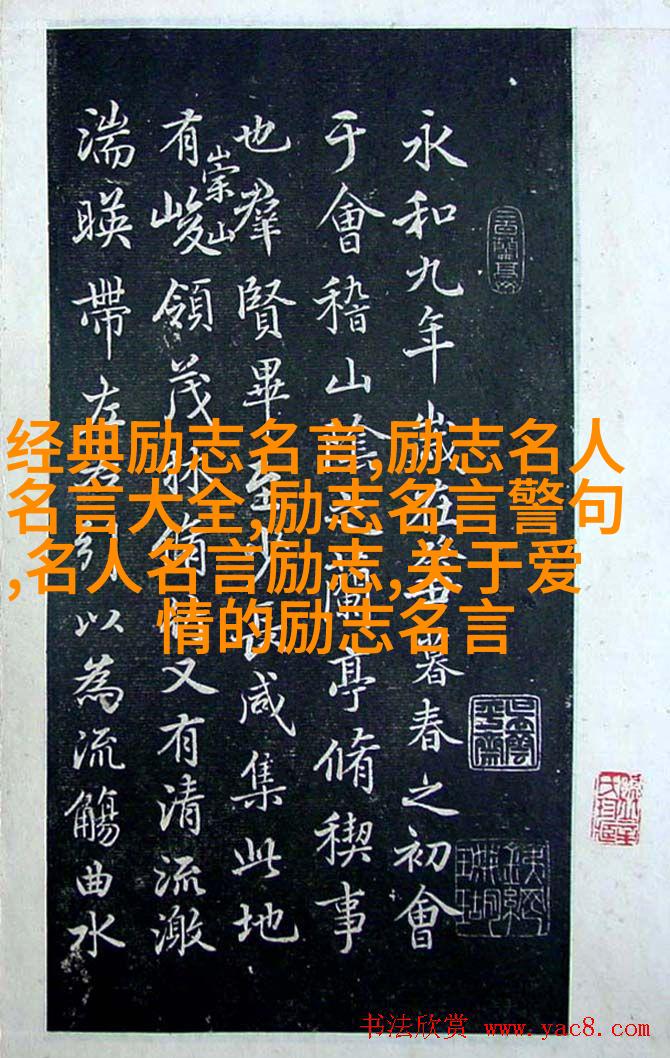 永和九年歲在癸丑暮春之初會
于會稽山陰之蘭亭脩稧事
也羣賢畢至少長咸集此地
有崇山峻領茂林脩竹又有清流激
湍暎帶左右引以為流觴曲水
经典励志名言,励志名人
名言大全,励志名言警句
,名人名言励志,关于爱
情的励志名言
书法欣赏 www.yac8.com